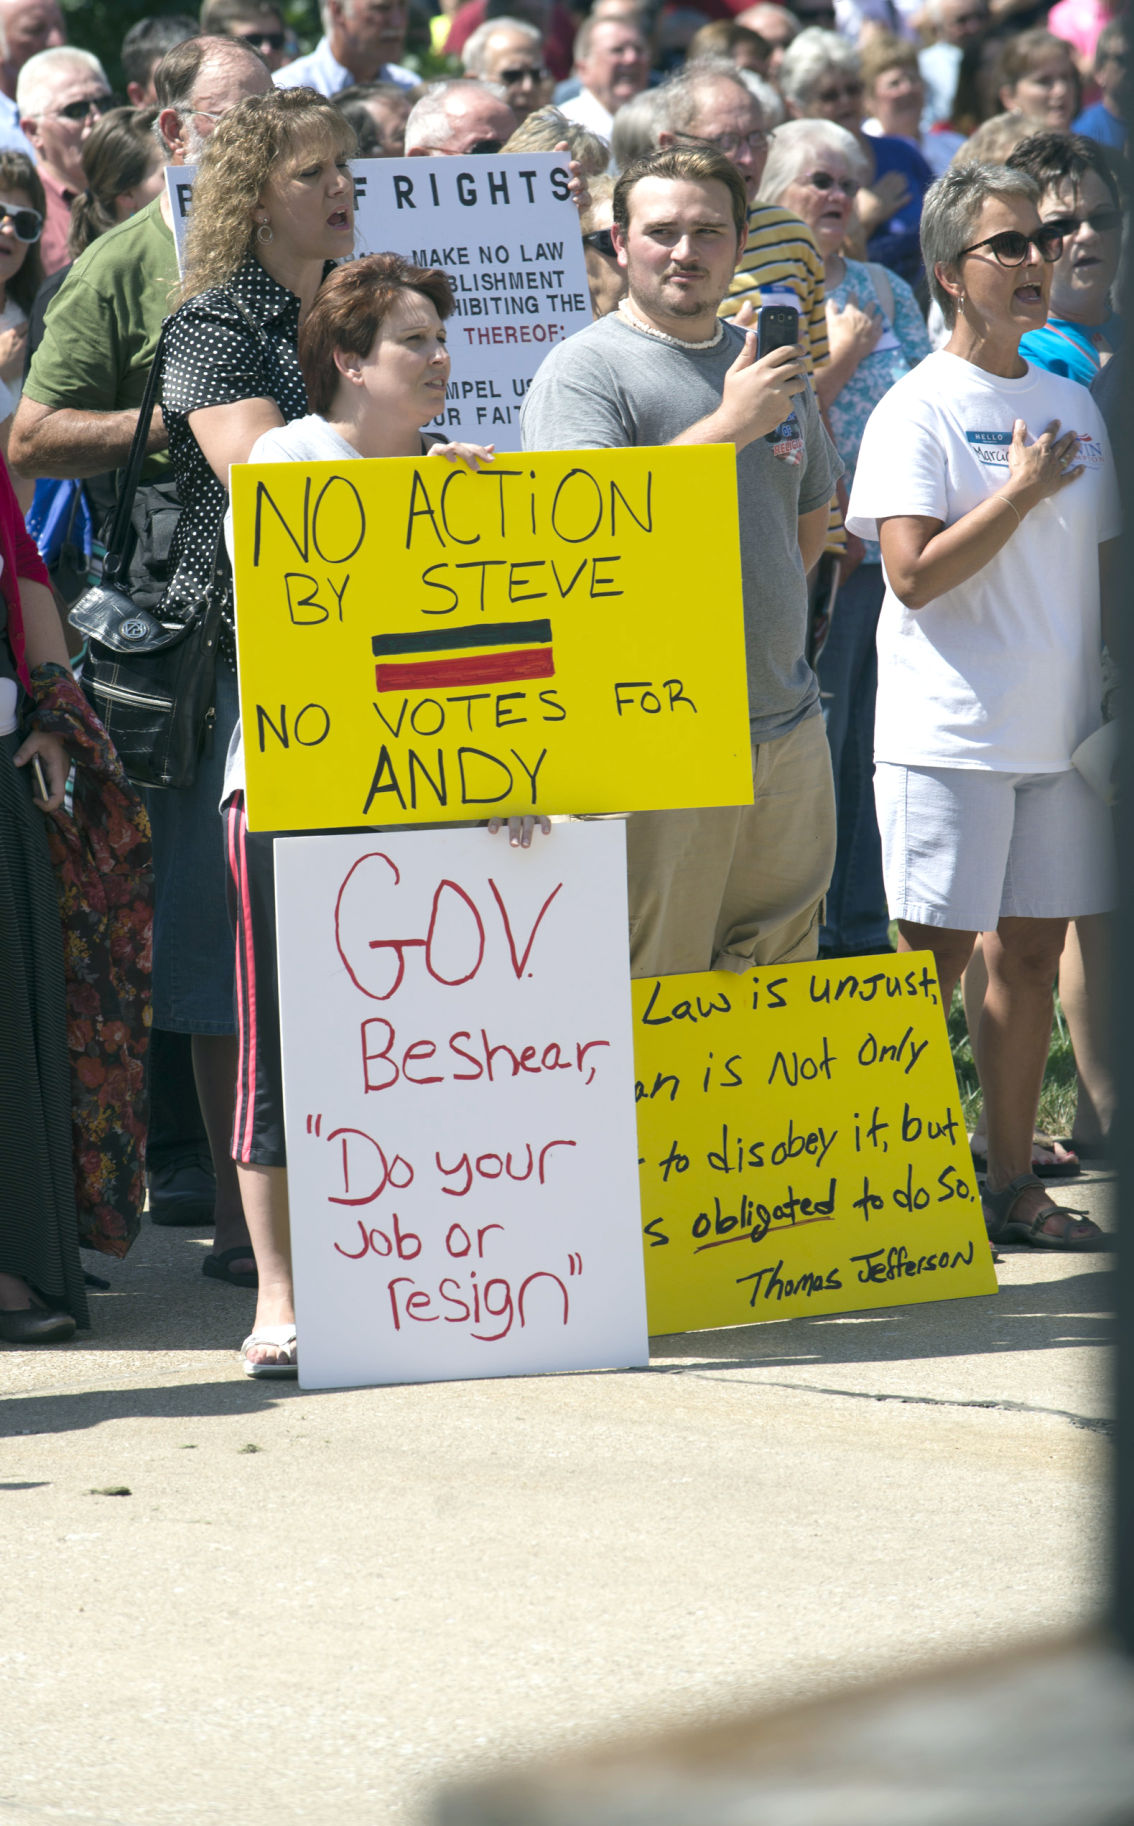 F RIGHTS
MAKE NO LAW
BLISHMENT
HIBITING THE
THEREOF:
MPEL US
OUR FAIT
HELLO
NO ACTiON
BY STEVE
NO VOTES FOR
ANDY
GOV.
Beshear,
"Do your
Job or
resign"
Law is unjust,
an is Not Only
to disobey it, but
s obligated to do so.
Thomas Jefferson